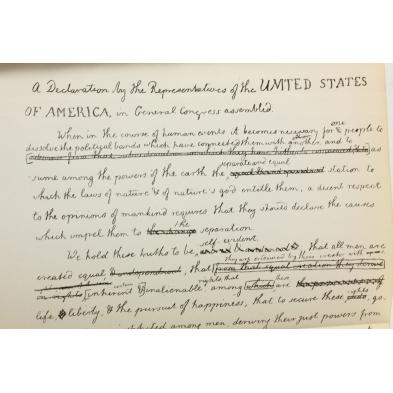 A Declaration by the Representatives of the UNITED STATES
OF AMERICA, in General Congress assembled.
When in the course of human events it becomes necessary for one people to
dissolve the political bands which have connected them with another, and to as
-sume among the powers of the earth the separate and equal station to
which the laws of nature & of nature's god entitle them, a decent respect
to the opinions of mankind requires that they should declare the causes
which impel them to the separation.
We hold these truths to be self evident, that all men are
created equal, that they are endowed by their creator with
from that equal creation they derive
rights that these
inherent & inalienable among which are
life, & liberty, & the pursuit of happiness, that to secure these rights, go-
among men deriving their just powers from